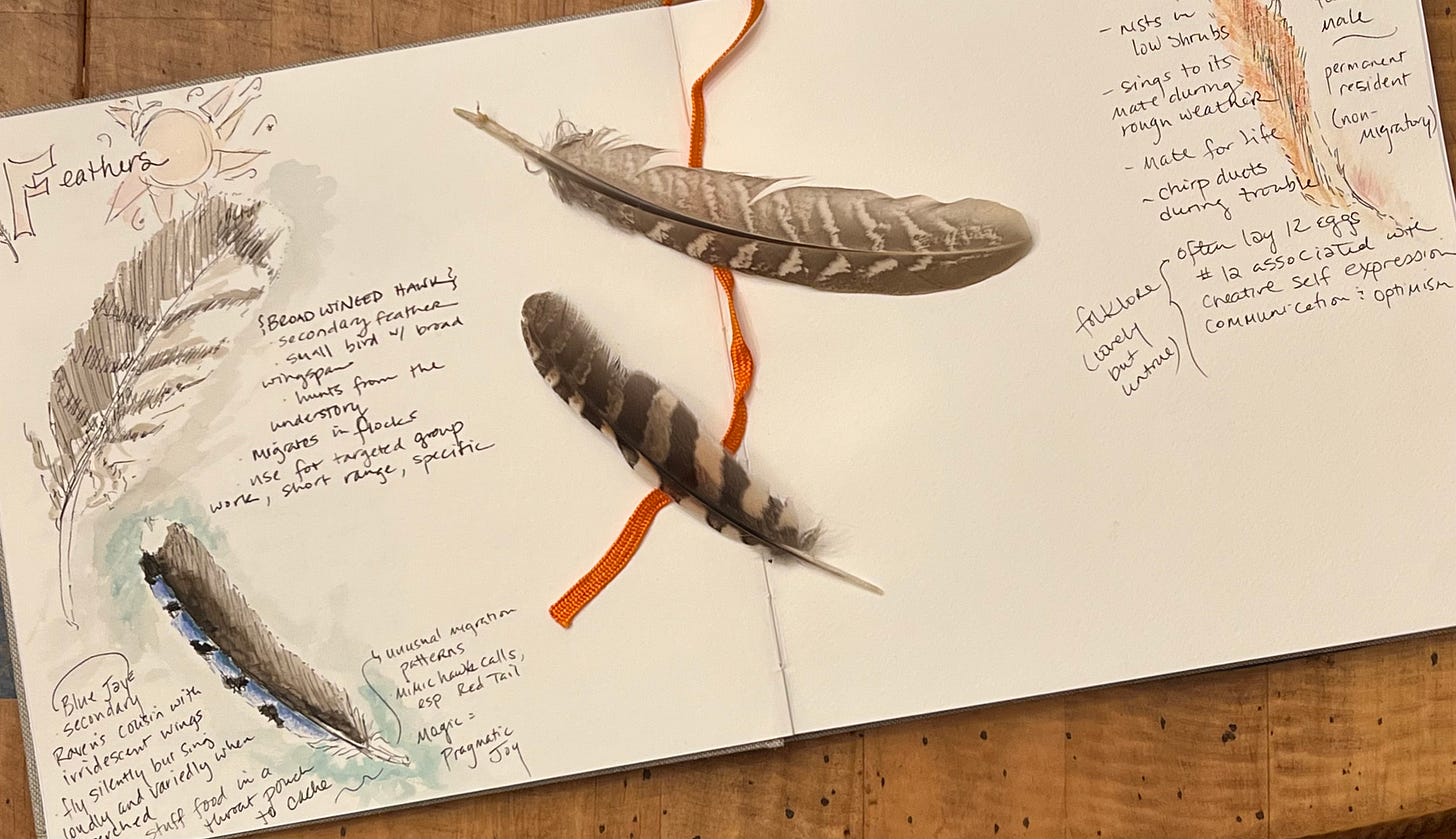 Feathers
{BROAD WINGED HAWK}
· secondary feather
· small bird w/ broad
wingspan
· hunts from the
understory
· migrates in flocks
· use for targeted group
work, short range, specific
Blue Jay
· secondary
Raven's cousin with
irridescent wings
· fly silently but sing
loudly and variedly when
perched
· stuff food in a
throat pouch
to cache
unusual migration
patterns
· mimic hawk calls,
esp Red Tail
Magic =
Pragmatic
Joy
- nests in
low shrubs
- sings to its
mate during
rough weather
- mate for life
- chirp duets
during trouble
male
permanent
resident
(non-
migratory)
folklore
(lovely
but
untrue)
often lay 12 eggs
# 12 associated with
creative self expression
communication & optimism